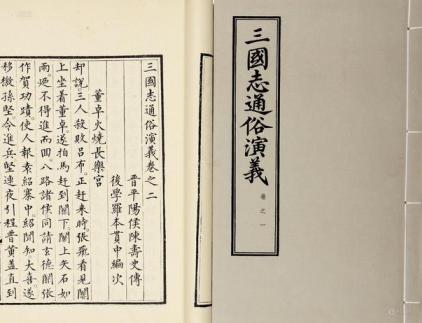 三國志通俗演義
卷之一
三國志通俗演義卷之二
晋平陽侯陳壽史傳
後學羅本貫中編次
董卓火燒長樂宮
却說三人殺敗呂布正赶來時張飛看見關
上坐着董卓遂拍馬赶到關下關上矢石如
雨廼不得進而回八路諸侯同請玄德關張
作賀功蹟使人報袁紹寨中紹聞知大喜遂
移檄孫堅令進兵堅連夜引程普黃蓋直到